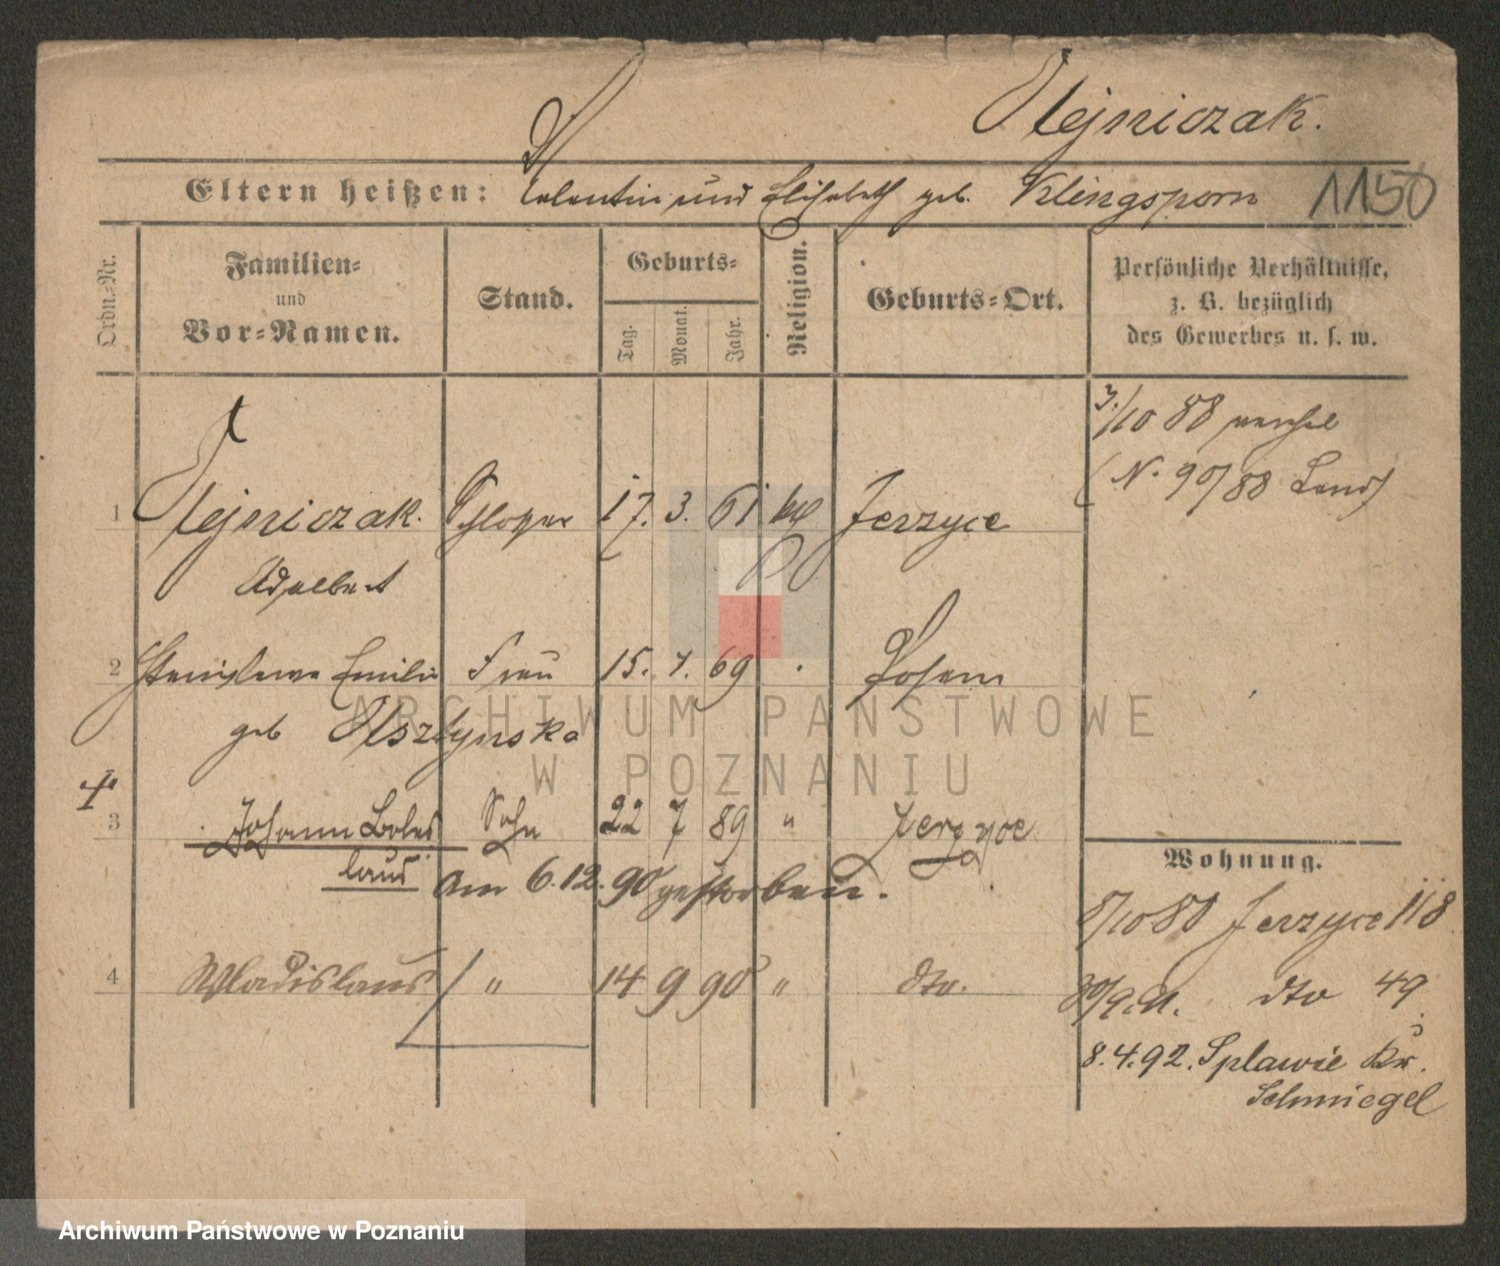 Olejniczak.
Eltern heißen: Valentin und Elisabeth geb. Klingsporn 1150
Ordn.-Nr.
Familien-
und
Vor-Namen.
Stand.
Geburts-
Tag.
Monat.
Jahr.
Religion.
Geburts-Ort.
Persönliche Verhältnisse,
z. B. bezüglich
des Gewerbes u. s. w.
3./10 88
(N. 90/88 Land)
1 Olejniczak. Schlosser 17. 3. 61 kth Jerzyce
Adalbert
2 Stanislawa Emilie Frau 15. 7. 69 Posen
geb Olsztynska
3 Johann Boles Sohn 22 7 89 " Jerzyce
laus am 6.12.90 gestorben.
4 Wladislaus " 14 9 90 " dto.
Wohnung.
8/10 88 Jerzyce 118
30/9.91. dto 49
8.4.92. Splawie Kr.
Schmiegel
ARCHIWUM PAŃSTWOWE
W POZNANIU
Archiwum Państwowe w Poznaniu